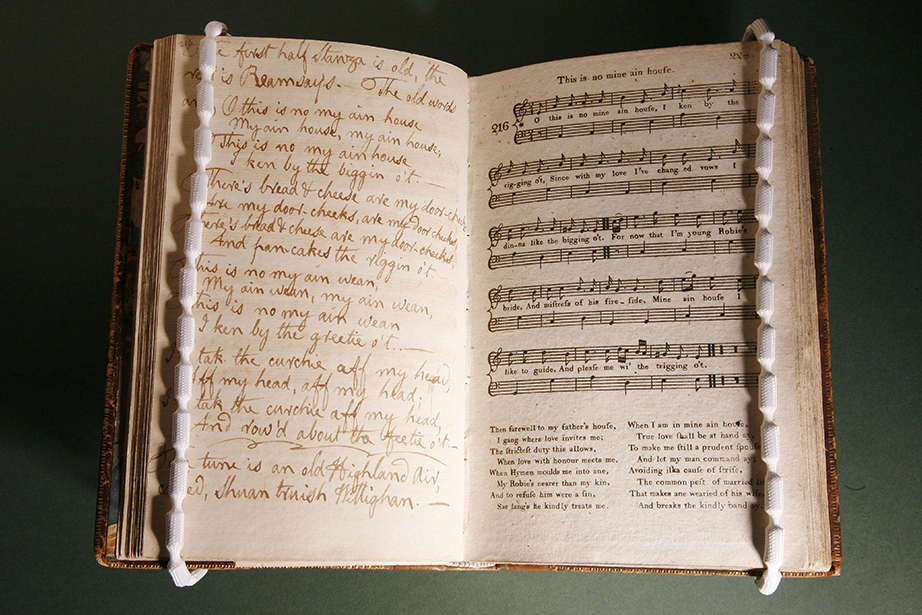 first half Stanza is old, the
is Ramsay's. The old words
O this is no my ain house
My ain house, my ain house,
This is no my ain house
I ken by the biggin o't. —
There's bread & cheese are my door-cheeks
Are my door-cheeks, are my door cheeks,
There's bread & cheese are my door-cheeks,
And pan-cakes the riggin o't
This is no my ain wean,
My ain wean, my ain wean,
This is no my ain wean
I ken by the greetie o't. —
tak the curchie aff my head,
Aff my head, aff my head,
tak the curchie aff my head,
And row'd about the feetie o't —
tune is an old Highland air,
Shuan truish Willighan. —
This is no mine ain houſe.
216
O this is no mine ain houſe, I ken by the
rig-ging o't, Since with my love I've chang'd vows I
din-na like the bigging o't. For now that I'm young Robie's
bride, And miſtreſs of his fire-ſide, Mine ain houſe I
like to guide, And pleaſe me wi' the trigging o't.
Then farewell to my father's houſe,
I gang where love invites me;
The ſtricteſt duty this allows,
When love with honour meets me.
When Hymen moulds me into ane,
My Robie's nearer than my kin,
And to refuſe him were a ſin,
Sae lang's he kindly treats me.
When I am in mine ain houſe,
True love ſhall be at hand ay,
To make me ſtill a prudent ſpouſe
And let my man command ay;
Avoiding ilka cauſe of ſtrife,
The common peſt of married life
That makes ane wearied of his wife,
And breaks the kindly band ay.